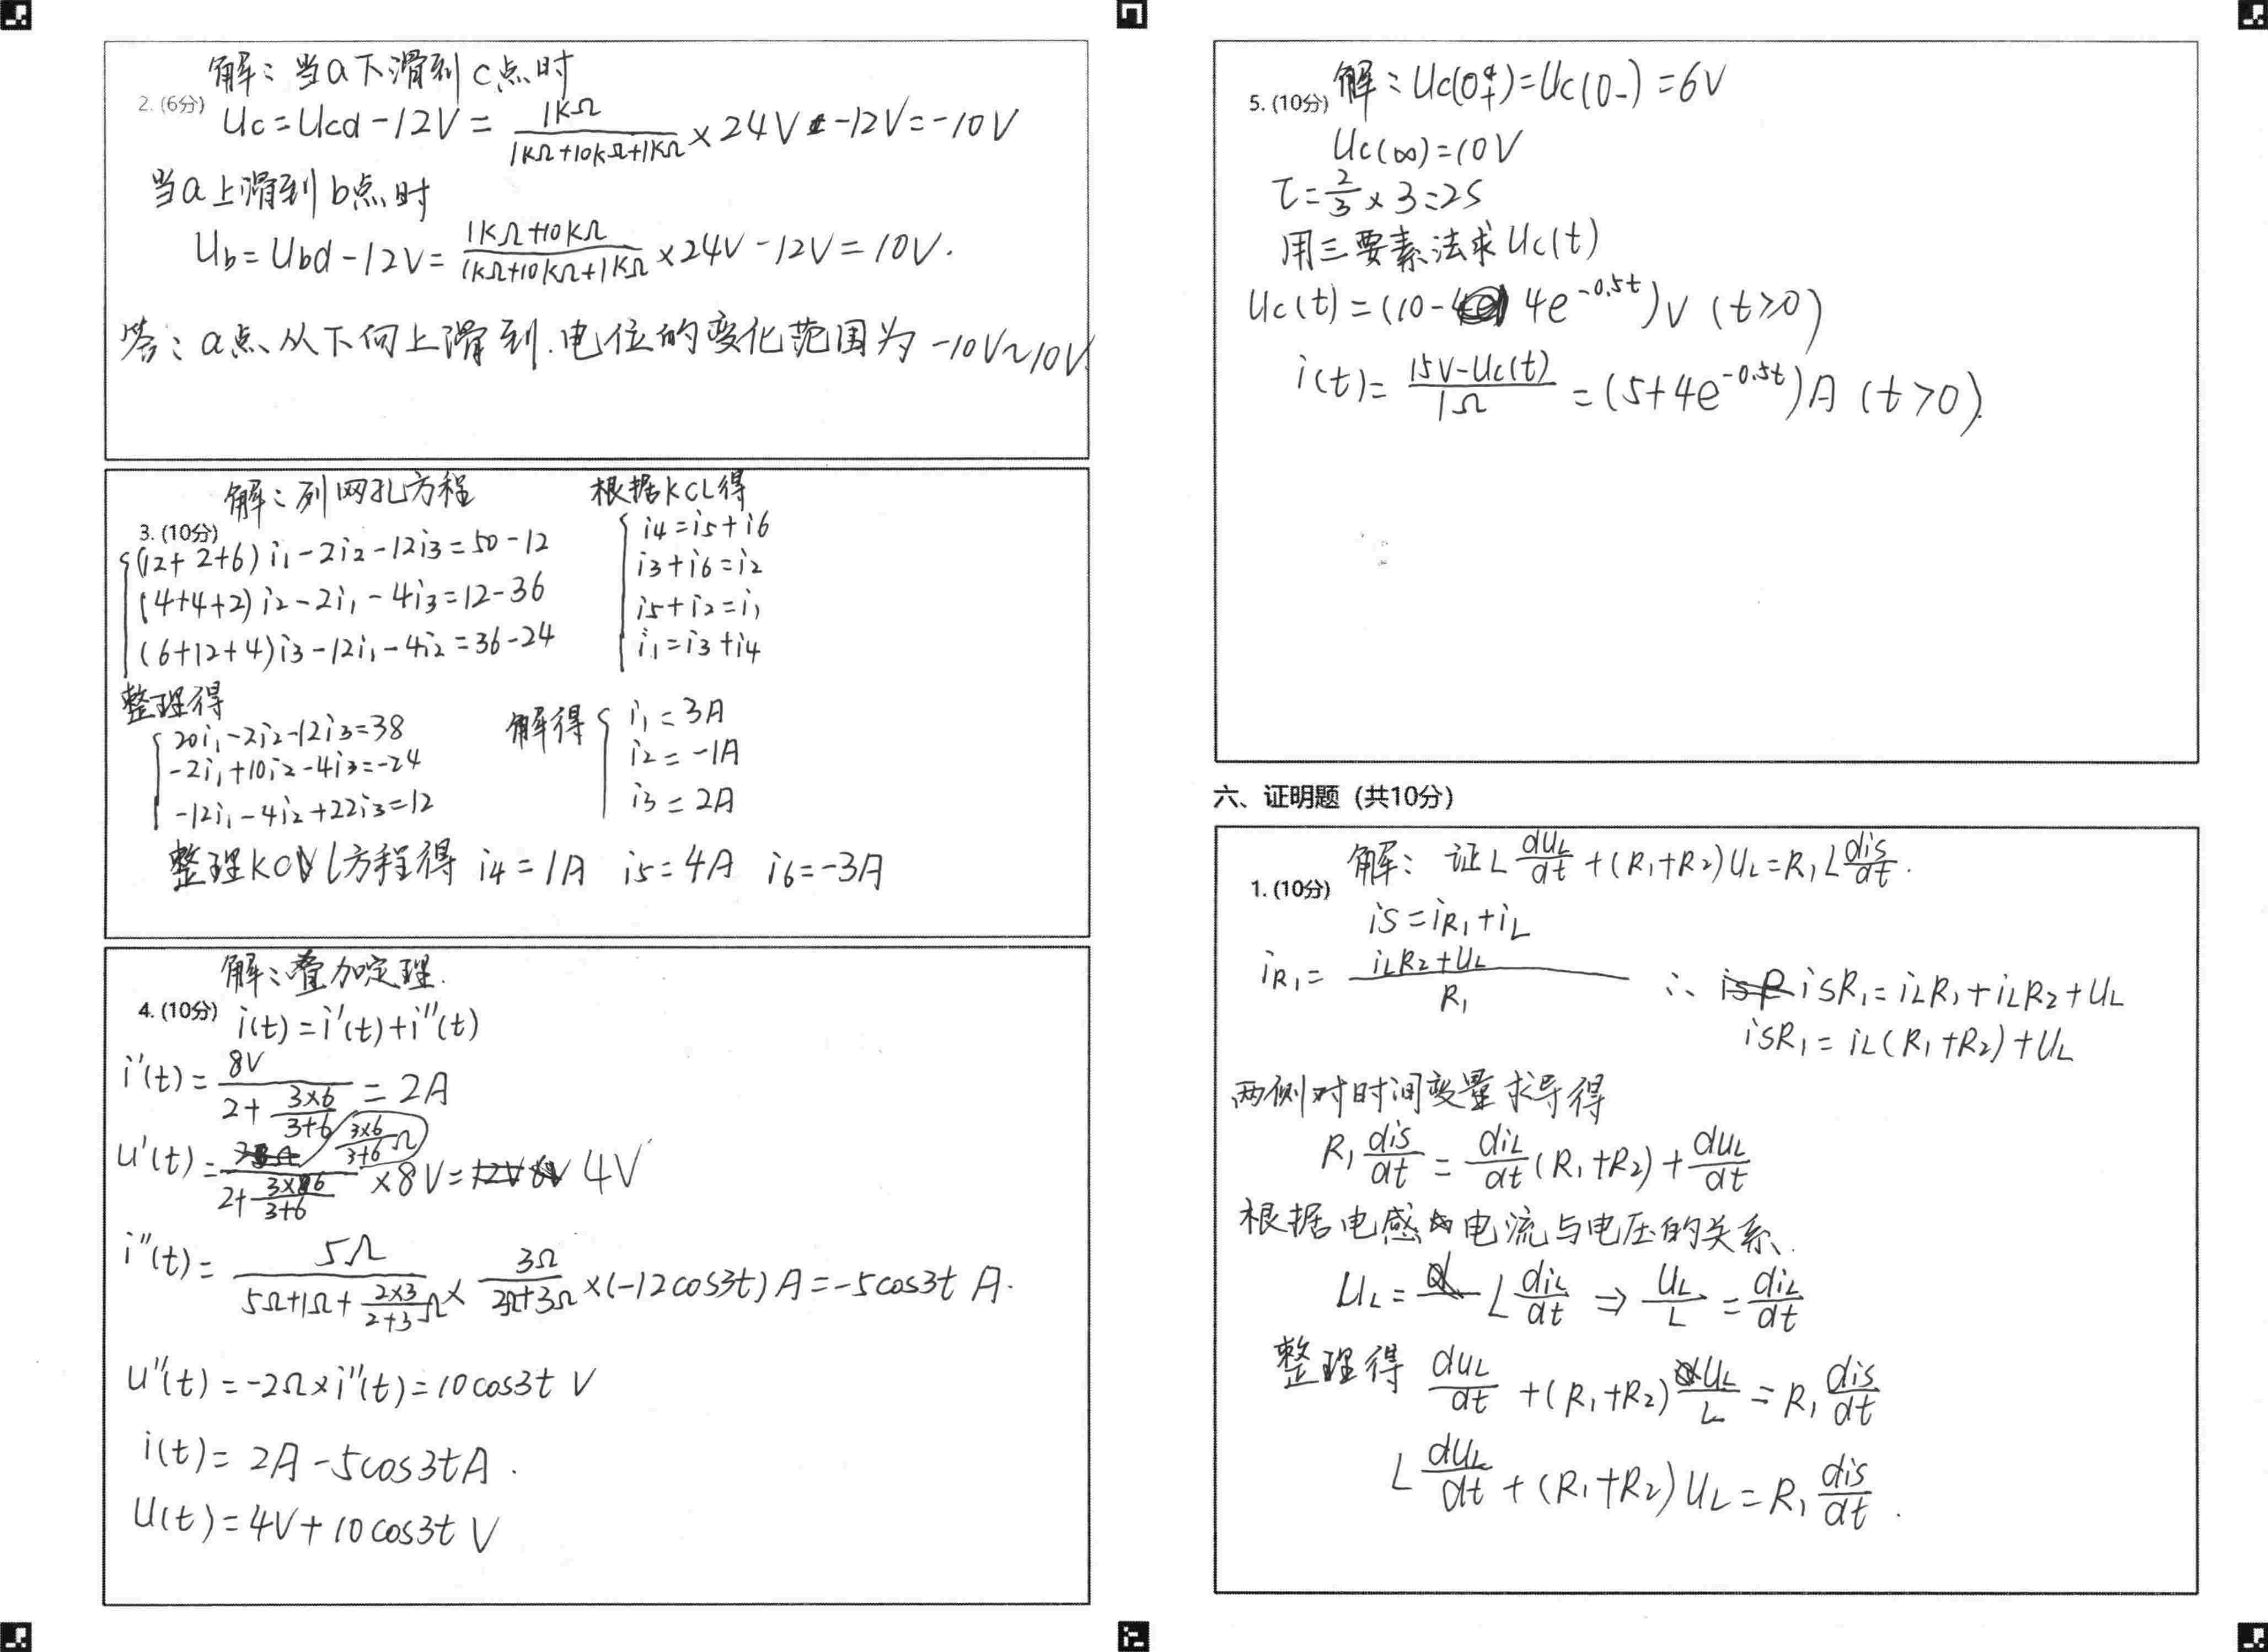 解：当a下滑到c点时
2. (6分)
Uc=Ucd-12V= 1KΩ/(1KΩ+10KΩ+1KΩ) ×24V -12V=-10V
当a上滑到b点时
Ub=Ubd-12V= (1KΩ+10KΩ)/(1KΩ+10KΩ+1KΩ) ×24V-12V=10V.
答：a点从下向上滑到.电位的变化范围为-10V~10V.
解：列网孔方程
3. (10分)
(12+2+6)i1-2i2-12i3=50-12
(4+4+2)i2-2i1-4i3=12-36
(6+12+4)i3-12i1-4i2=36-24
整理得
20i1-2i2-12i3=38
-2i1+10i2-4i3=-24
-12i1-4i2+22i3=12
根据KCL得
i4=i5+i6
i3+i6=i2
i5+i2=i1
i1=i3+i4
解得
i1=3A
i2=-1A
i3=2A
整理KCL方程得 i4=1A i5=4A i6=-3A
解：叠加定理.
4. (10分)
i(t)=i'(t)+i''(t)
i'(t)= 8V/(2+(3×6)/(3+6)) =2A
u'(t)= ((3×6)/(3+6)Ω)/(2+(3×6)/(3+6)) ×8V=4V
i''(t)= 5Ω/(5Ω+1Ω+(2×3)/(2+3)Ω) × 3Ω/(2Ω+3Ω) ×(-12cos3t)A=-5cos3t A.
u''(t)=-2Ω×i''(t)=10cos3t V
i(t)=2A-5cos3tA.
U(t)=4V+10cos3t V
解：Uc(0+)=Uc(0-)=6V
5. (10分)
Uc(∞)=10V
τ=2/3×3=2S
用三要素法求Uc(t)
Uc(t)=(10-4e^-0.5t)V (t>0)
i(t)= (15V-Uc(t))/1Ω =(5+4e^-0.5t)A (t>0).
六、证明题（共10分）
解：证L duL/dt+(R1+R2)UL=R1L dis/dt.
1. (10分)
iS=iR1+iL
iR1= (iLR2+UL)/R1 ∴ iSR1=iLR1+iLR2+UL
iSR1=iL(R1+R2)+UL
两侧对时间变量求导得
R1 dis/dt=diL/dt(R1+R2)+duL/dt
根据电感电流与电压的关系.
UL=L diL/dt ⇒ UL/L=diL/dt
整理得 duL/dt+(R1+R2)UL/L=R1 dis/dt
L duL/dt+(R1+R2)UL=R1 dis/dt.